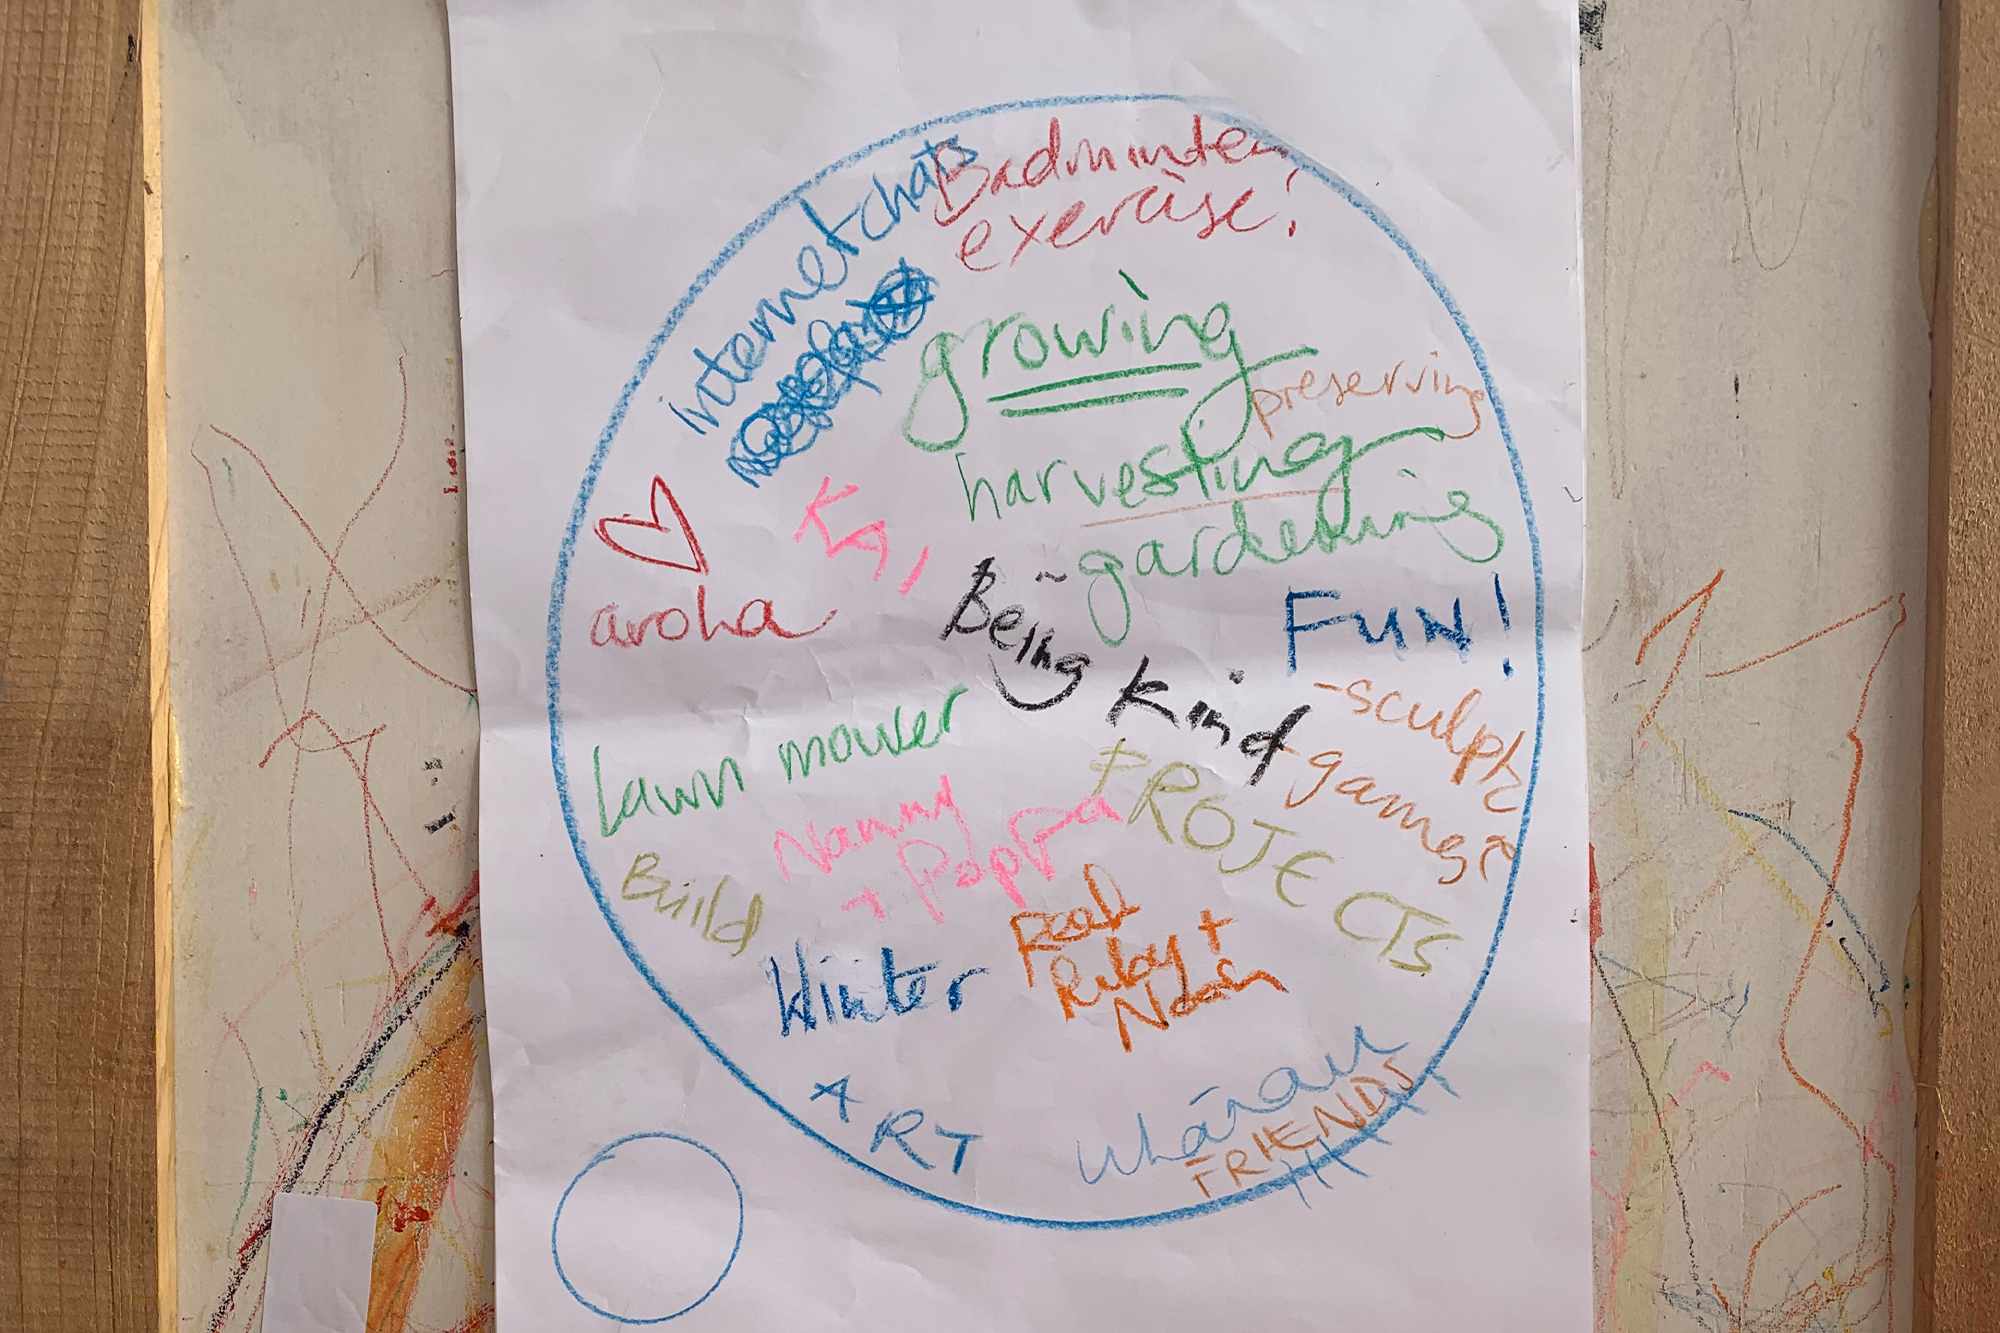 internet chats
Badminton
exercise!
growing
preserving
harvesting
gardening
KAI
aroha
Being
Kind
FUN!
- sculpt
+ games
lawn mower
PROJECTS
Nanny
+ Poppa
Build
Ruby +
Noah
Winter
ART
whānau
FRIENDS